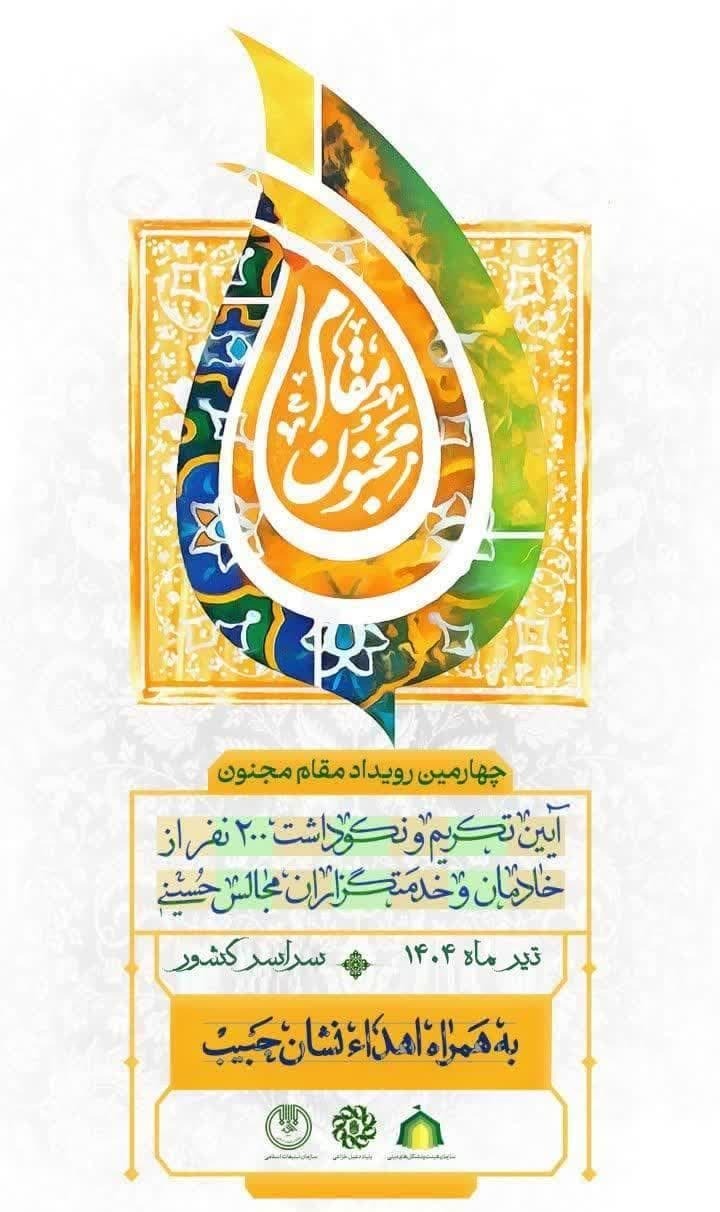 مقام
مجنون
چهارمین رویداد مقام مجنون
آیین تکریم و نکوداشت ۲۰۰ نفر از
خادمان و خدمتگزاران مجالس حسینی
تیر ماه ۱۴۰۴ سراسر کشور
به همراه اهداء نشان حبیب
سازمان هیئت و تشکل‌های دینی
بنیاد دعبل خزاعی
سازمان تبلیغات اسلامی